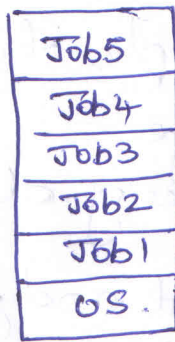 Job5
Job4
Job3
Job2
Job1
OS.